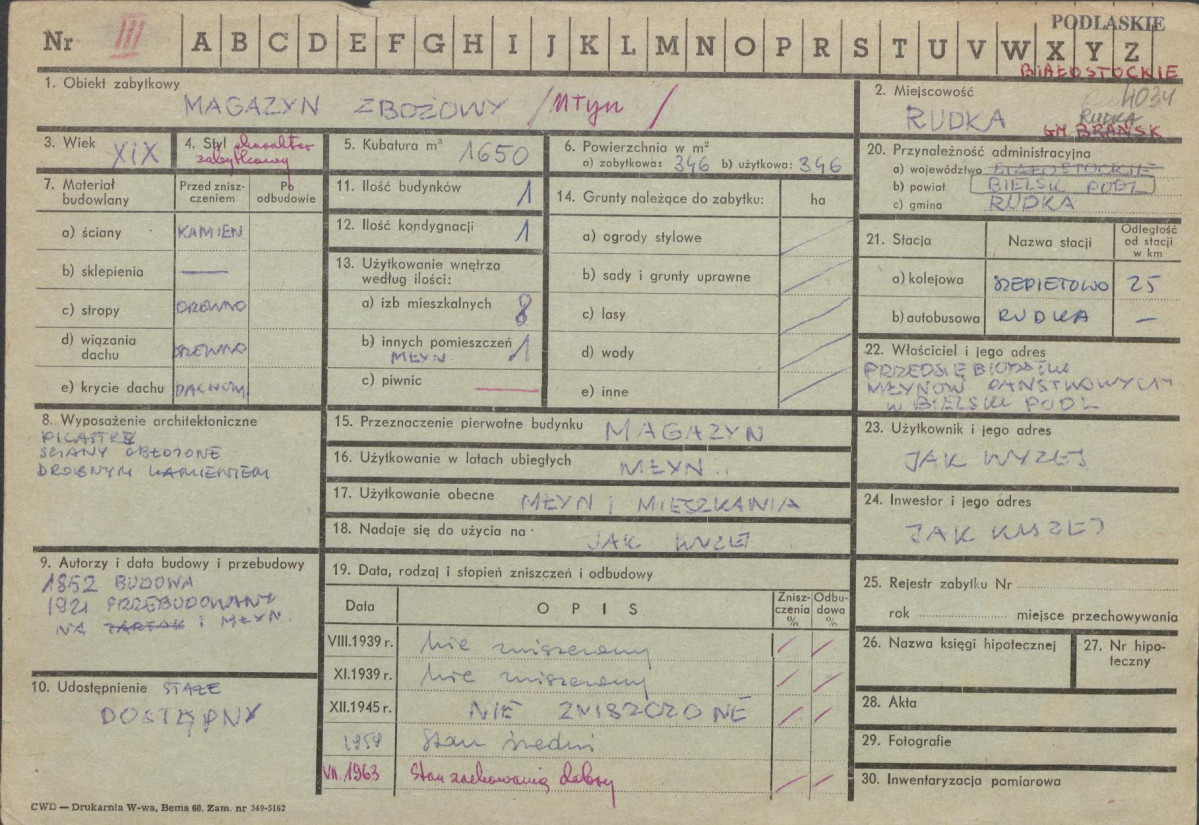 PODLASKIE
Nr III A B C D E F G H I J K L M N O P R S T U V W X Y Z
BIAŁOSTOCKIE
1. Obiekt zabytkowy
MAGAZYN ZBOŻOWY /Młyn/
2. Miejscowość
4034
RUDKA
RUDKA
GM. BRAŃSK
3. Wiek XIX
4. Styl charakter
zabytkowy
5. Kubatura m³ 1650
6. Powierzchnia w m²
a) zabytkowa: 346 b) użytkowa: 346
20. Przynależność administracyjna
a) województwo BIAŁOSTOCKIE
b) powiat BIELSK PODL
c) gmina RUDKA
7. Materiał
budowlany
Przed znisz-
czeniem
Po
odbudowie
a) ściany KAMIEŃ
b) sklepienia —
c) stropy DREWNO
d) wiązania
dachu DREWNO
e) krycie dachu
11. Ilość budynków 1
12. Ilość kondygnacji 1
13. Użytkowanie wnętrza
według ilości:
a) izb mieszkalnych 8
b) innych pomieszczeń 1
MŁYN
c) piwnic —
14. Grunty należące do zabytku: ha
a) ogrody stylowe
b) sady i grunty uprawne
c) lasy
d) wody
e) inne
21. Stacja
Nazwa stacji
Odległość
od stacji
w km
a) kolejowa SZEPIETOWO 25
b) autobusowa RUDKA —
22. Właściciel i jego adres
PRZEDSIĘBIORSTWO
MŁYNÓW PAŃSTWOWYCH
W BIELSKU PODL
8. Wyposażenie architektoniczne
PILASTRY
ŚCIANY OBŁOŻONE
DROBNYM KAMIENIEM
15. Przeznaczenie pierwotne budynku MAGAZYN
16. Użytkowanie w latach ubiegłych MŁYN
17. Użytkowanie obecne MŁYN I MIESZKANIA
18. Nadaje się do użycia na JAK WYŻEJ
23. Użytkownik i jego adres
JAK WYŻEJ
24. Inwestor i jego adres
JAK WYŻEJ
9. Autorzy i data budowy i przebudowy
1852 BUDOWA
1921 PRZEBUDOWANY
NA TARTAK i MŁYN
10. Udostępnienie STALE
DOSTĘPNY
19. Data, rodzaj i stopień zniszczeń i odbudowy
Data
OPIS
Znisz-
czenia
%
Odbu-
dowa
%
VIII.1939 r. Nie zniszczony
XI.1939 r. Nie zniszczony
XII.1945 r. NIE ZNISZCZONE
1959 Stan średni
VII. 1963 Stan zachowania dobry
25. Rejestr zabytku Nr
rok miejsce przechowywania
26. Nazwa księgi hipotecznej
27. Nr hipo-
teczny
28. Akta
29. Fotografie
30. Inwentaryzacja pomiarowa
CWD — Drukarnia W-wa, Bema 60. Zam. nr 349-5162